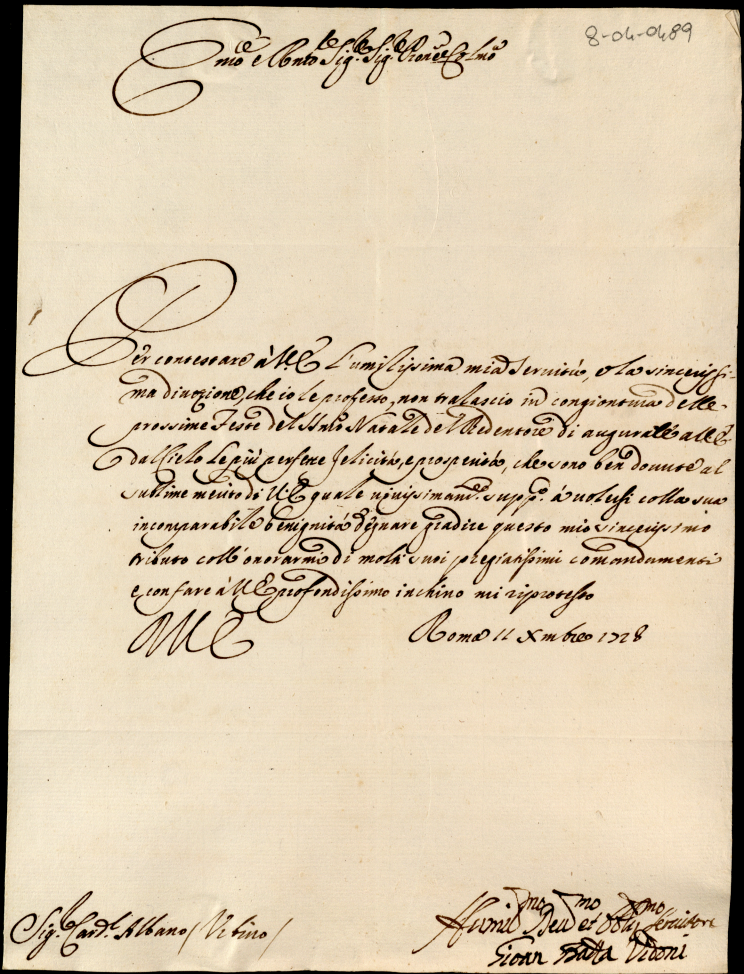 8-04-0489
Em̃o e Rmo Sig.r Sig.r Prõne Colmo
Per contestare à V.E. l'umilissima mia servitù, e la sincerissi-
ma divozione, che io le professo, non tralascio in congiontura delle
prossime Feste del Smo Natale del Redentore di augurarle all' E.V.
dal Cielo le più perfette felicità, e prosperità, che sono ben dovute al
sublime merito di V.E. quale vivissimam.te supp.co à volersi colla sua
incomparabile benignità degnare gradire questo mio sincerissimo
tributo coll'onorarmi di molti suoi pregiatissimi comandamenti
e con fare à V.E. profondissimo inchino mi riprotesto
D V E
Roma 11 Xmbre 1728
Sig.r Card.l Albano / Urbino /
Humil.mo Dev.mo et Obb.mo Servitore
Gioan Batta Vidoni